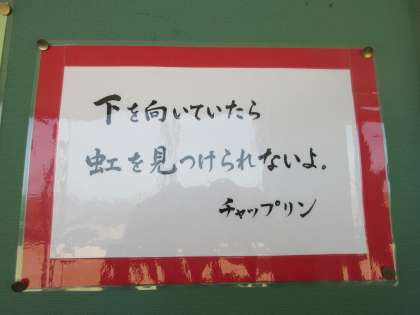 下を向いていたら
虹を見つけられないよ。
チャップリン